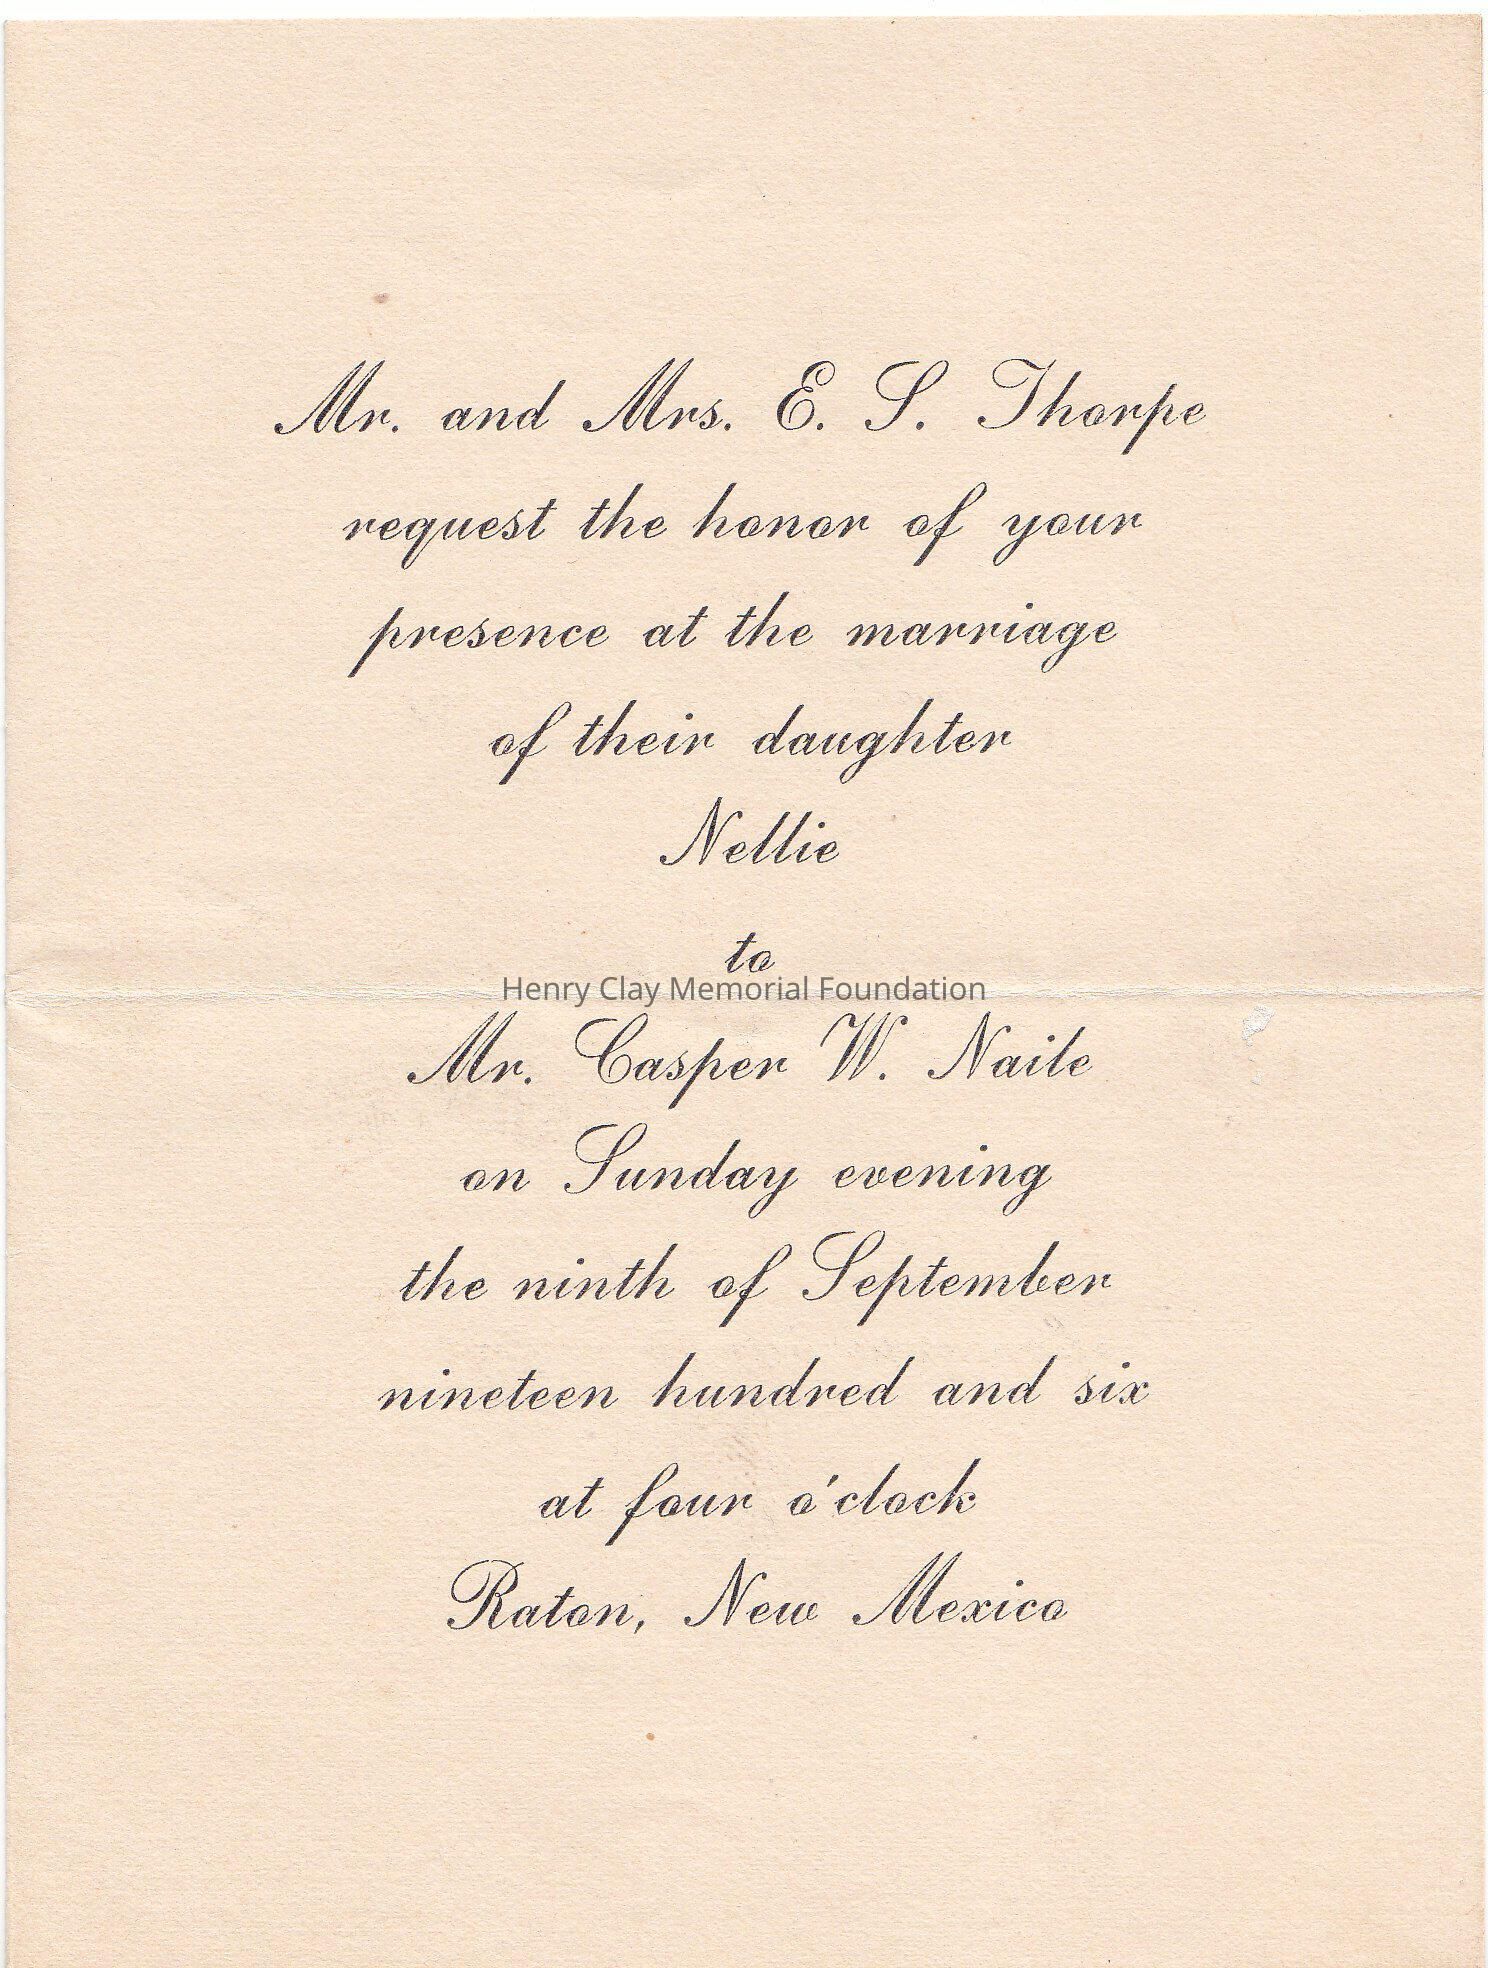 Mr. and Mrs. E. S. Thorpe
request the honor of your
presence at the marriage
of their daughter
Nellie
to
Henry Clay Memorial Foundation
Mr. Casper W. Naile
on Sunday evening
the ninth of September
nineteen hundred and six
at four o'clock
Raton, New Mexico